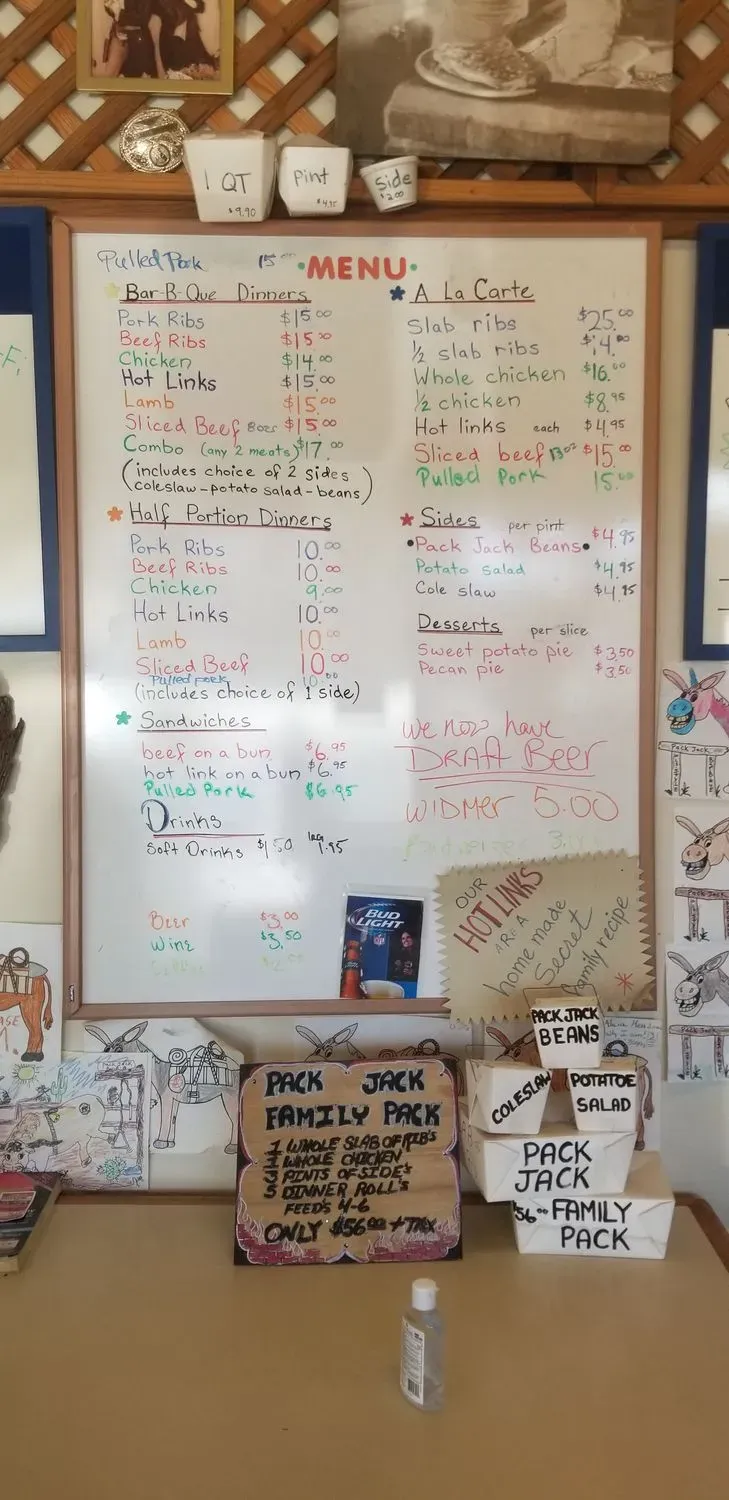 1 QT
$9.90
Pint
$4.95
Side
$2.00
Pulled Pork 15.00
MENU
Bar-B-Que Dinners
Pork Ribs $15.00
Beef Ribs $15.00
Chicken $14.00
Hot Links $15.00
Lamb $15.00
Sliced Beef 8oz $15.00
Combo (any 2 meats) $17.00
(includes choice of 2 sides
coleslaw-potato salad-beans)
Half Portion Dinners
Pork Ribs 10.00
Beef Ribs 10.00
Chicken 9.00
Hot Links 10.00
Lamb 10.00
Sliced Beef 10.00
Pulled pork 10.00
(includes choice of 1 side)
Sandwiches
beef on a bun $6.95
hot link on a bun $6.95
Pulled Pork $6.95
Drinks
Soft Drinks $1.50 lrg 1.95
Beer $3.00
Wine $3.50
A La Carte
Slab ribs $25.00
1/2 slab ribs $14.00
Whole chicken $16.00
1/2 chicken $8.95
Hot links each $4.95
Sliced beef 13oz $15.00
Pulled Pork 15.00
Sides per pint
Pack Jack Beans $4.95
Potato salad $4.95
Cole slaw $4.95
Desserts per slice
Sweet potato pie $3.50
Pecan pie $3.50
We now have
DRAFT Beer
WIDMER 5.00
BUD LIGHT
OUR
HOT LINKS
ARE A
home made
Secret
family recipe
PACK JACK
BEANS
COLESLAW
POTATOE
SALAD
PACK
JACK
$56.00 FAMILY
PACK
PACK JACK
FAMILY PACK
1 WHOLE SLAB OF RIB'S
1 WHOLE CHICKEN
3 PINTS OF SIDE'S
5 DINNER ROLL'S
FEED'S 4-6
ONLY $56.00 + TAX
Pack Jack
Pack Jack
Pack Jack